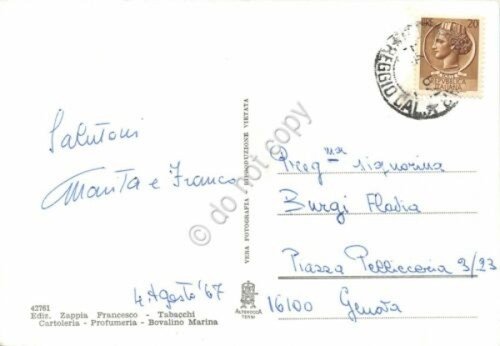 LIRE 20
REGGIO CAL.
Salutoni
Marita e Franco
4 Agosto '67
42761
Ediz. Zappia Francesco - Tabacchi
Cartoleria - Profumeria - Bovalino Marina
VERA FOTOGRAFIA - RIPRODUZIONE VIETATA
ALTEROCCA
TERNI
do not copy
Preg.ma signorina
Burgi Fladia
Piazza Pellicceria 3/23
16100 Genova